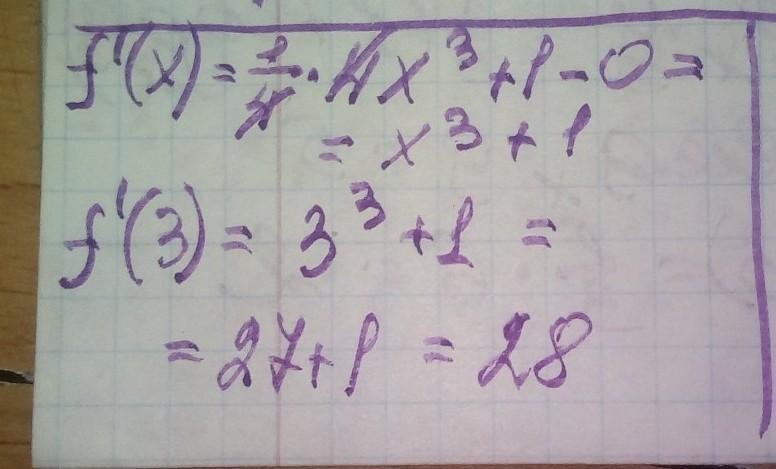 f'(x) = 1/4 · 4x³ + 1 - 0 =
= x³ + 1
f'(3) = 3³ + 1 =
= 27 + 1 = 28